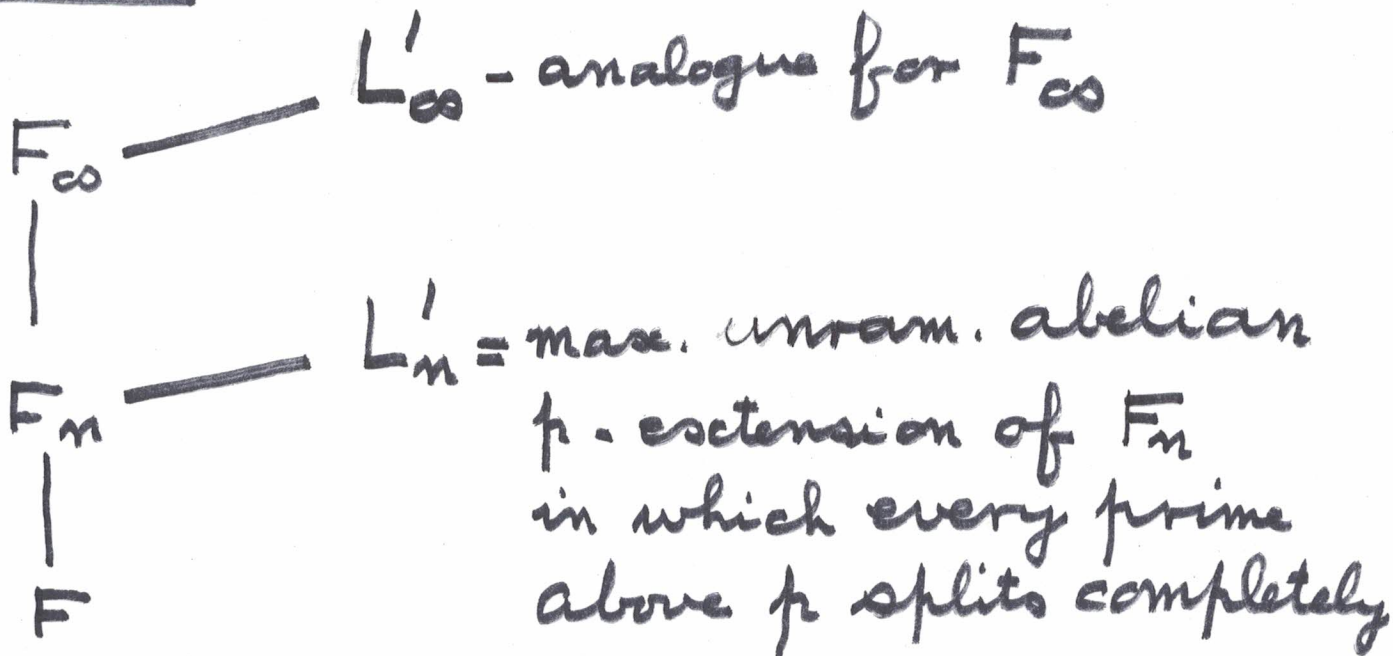 L'∞ - analogue for F∞
F∞
L'n = max. unram. abelian
Fn
p-extension of Fn
in which every prime
above p splits completely
F